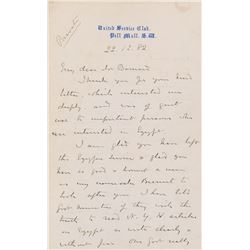 Private
United Service Club,
Pall Mall. S.W.
22. 12. 82
My dear Mr Barnard
Thank you for your kind
letter, which interested me
deeply, and was of great
use to important persons who
are interested in Egypt.
I am glad you have left
the Egyptian Service & glad you
have so good & honest a man
as my to
look after you. I have told
Govt if they wish the
truth to read N. Y. H articles
on Egypt as with clearly &
without fear. Our Govt really